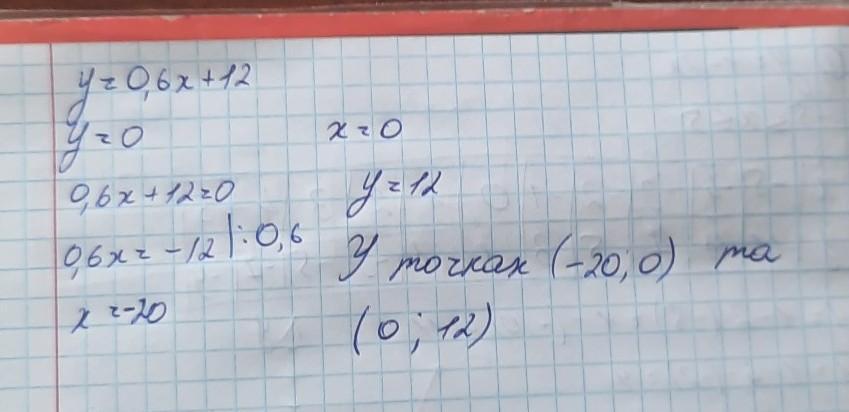 y=0,6x+12
y=0
0,6x+12=0
0,6x=-12 |:0,6
x=-20
x=0
y=12
У точках (-20;0) та
(0;12)